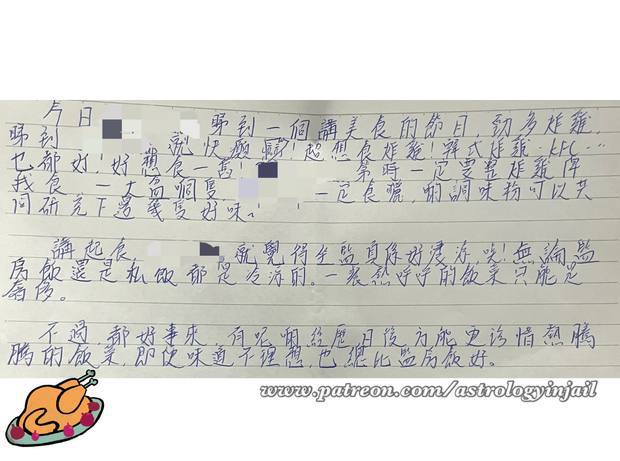 今日 睇到一個講美食的節目，勁多炸雞，
睇到 就快癲𡃁！超想食炸雞！韓式炸雞、KFC⋯
也都好！好想食一舊！ 第時一定要整炸雞俾
我食，一大盆嗰隻 一定食曬，啲調味粉可以共
同研究下邊幾隻好味。
講起食， 就覺得坐監真係好淒涼喎！無論監
房飯還是私飯都是冷冰的。一裝熱呼呼的飯菜只能是
奢侈。
不過，都好事來，有呢啲經歷日後方能更珍惜熱騰
騰的飯菜，即使味道不理想，也總比監房飯好。
www.patreon.com/astrologyinjail